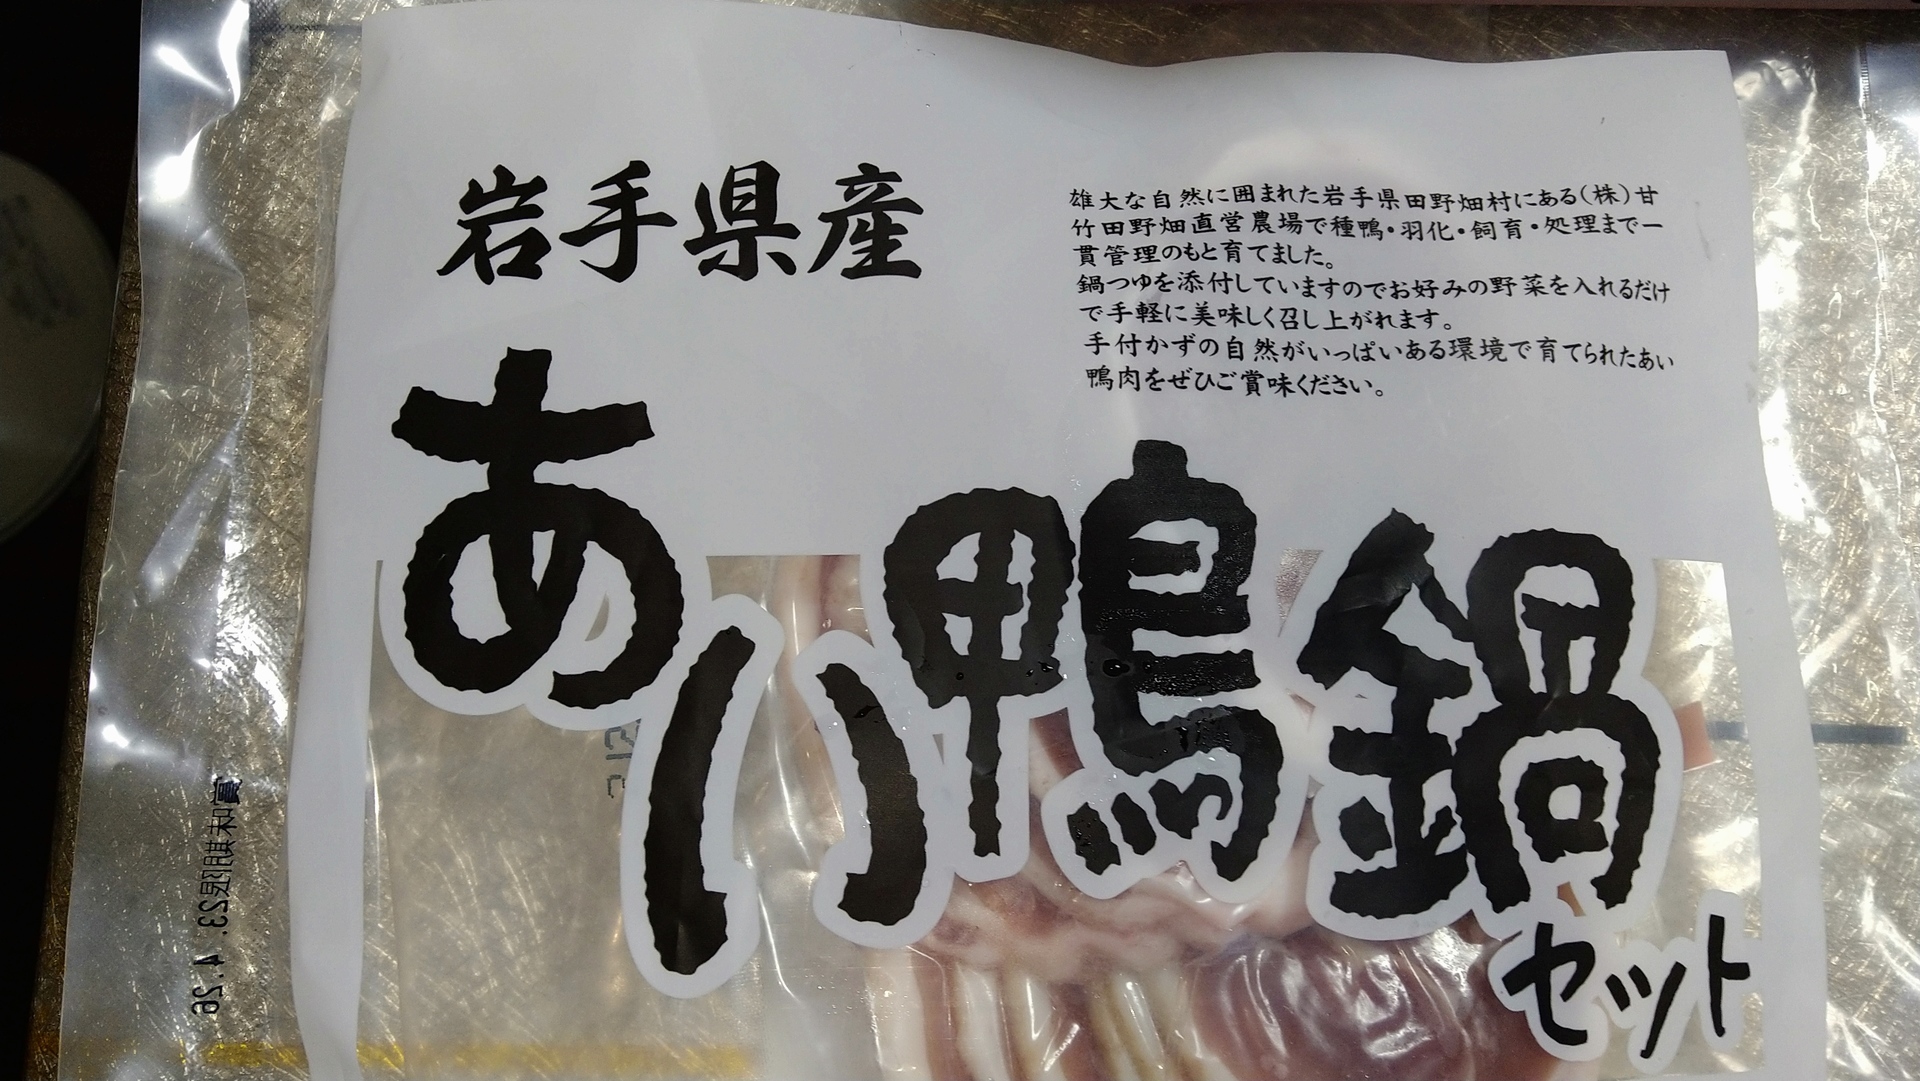 岩手県産
雄大な自然に囲まれた岩手県田野畑村にある(株)甘
竹田野畑直営農場で種鴨・羽化・飼育・処理まで一
貫管理のもと育てました。
鍋つゆを添付していますのでお好みの野菜を入れるだけ
で手軽に美味しく召し上がれます。
手付かずの自然がいっぱいある環境で育てられたあい
鴨肉をぜひご賞味ください。
あい鴨鍋
セット
賞味期限23. 4.26